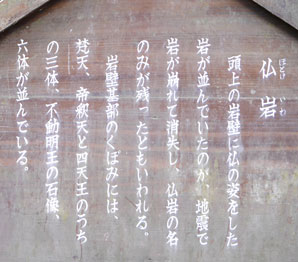 仏岩
ほとけ いわ
頭上の岩壁に仏の姿をした
岩が並んでいたのが、地震で
岩が崩れて消失し、仏岩の名
のみが残ったともいわれる。
岩壁基部のくぼみには、
梵天、帝釈天と四天王のうち
の三体、不動明王の石像
六体が並んでいる。